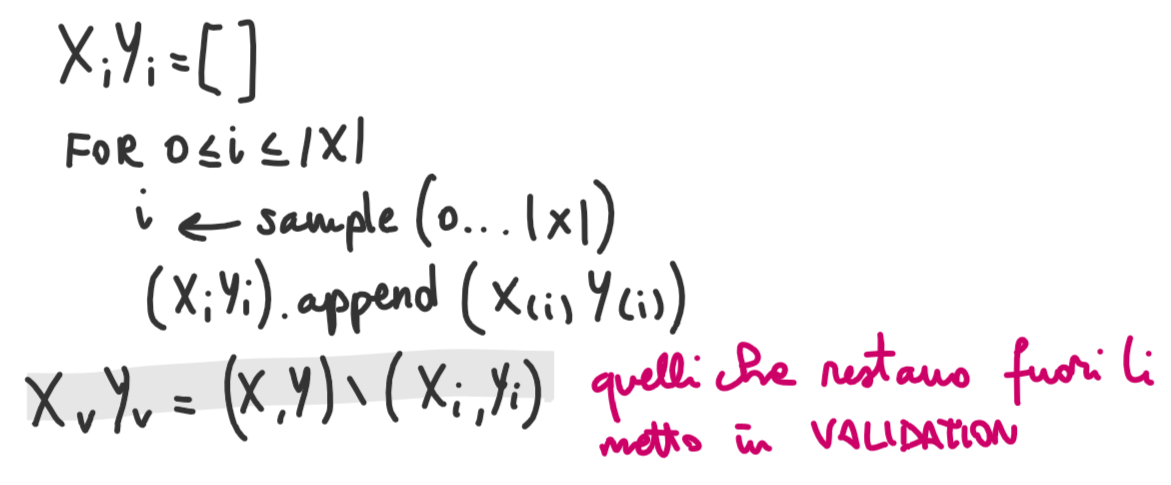 XᵢYᵢ = [ ]
FOR 0 ≤ i ≤ |X|
i ← sample (0... |x|)
(XᵢYᵢ).append (X₍ᵢ₎ Y₍ᵢ₎)
XᵥYᵥ = (X,Y) \ (Xᵢ,Yᵢ) quelli che restano fuori li
metto in VALIDATION